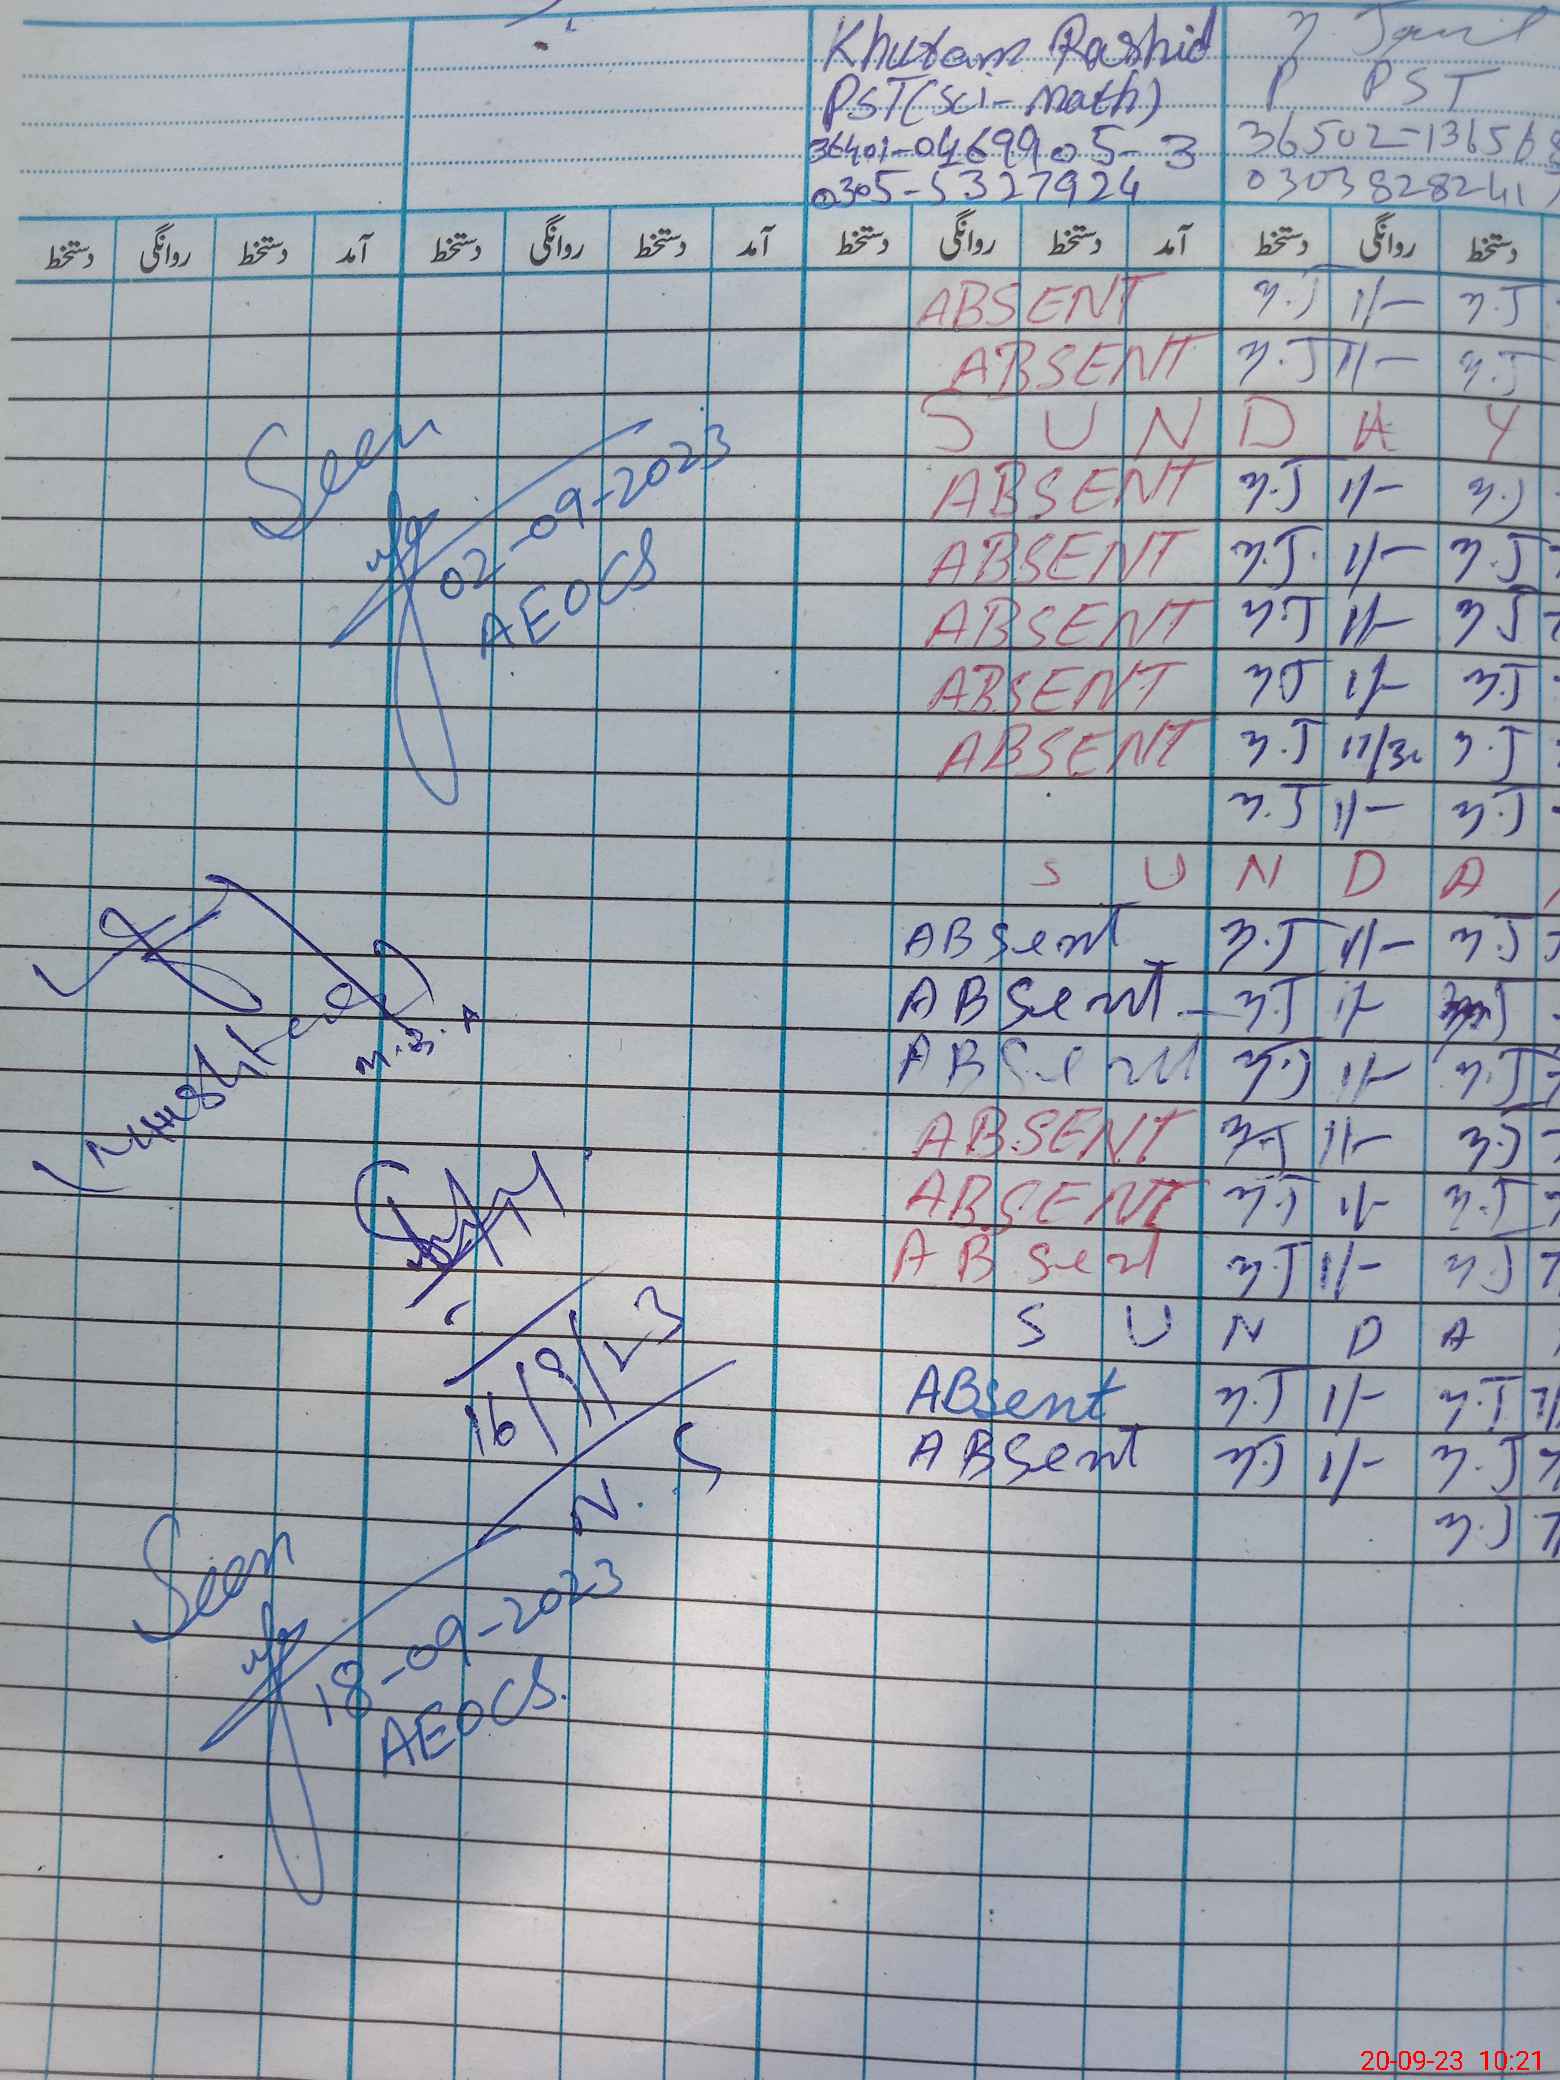 Khuram Rashid
PST(Sci-Math)
36401-0469905-3
0305-5327924
P PST
36502-136568
03038282417
دستخط روانگی دستخط آمد دستخط روانگی دستخط آمد دستخط روانگی دستخط آمد دستخط روانگی دستخط
ABSENT M.J 11/- M.J
ABSENT M.J 11/- M.J
S U N D A Y
ABSENT M.J 11/- M.J
ABSENT M.J. 11/- M.J
ABSENT M.J 11/- M J
ABSENT M J 11/- M.J
ABSENT M.J 11/30 M.J
M.J 11/- M.J
S U N D A
ABsent M.J 11/- M.J
ABsent - M.J 11/-
ABsent M.J 11/- M.J
ABSENT M.J 11/- M.J
ABSENT M.J 11/- M.J
ABsent M.J 11/- M.J
S U N D A
ABsent M.J 11/- M.J
ABsent M.J 11/- M.J
M.J
Seen
02-09-2023
AEOCS
M.B.A
16/9/23
N.S
Seen
18-09-2023
AEOCS.
20-09-23 10:21